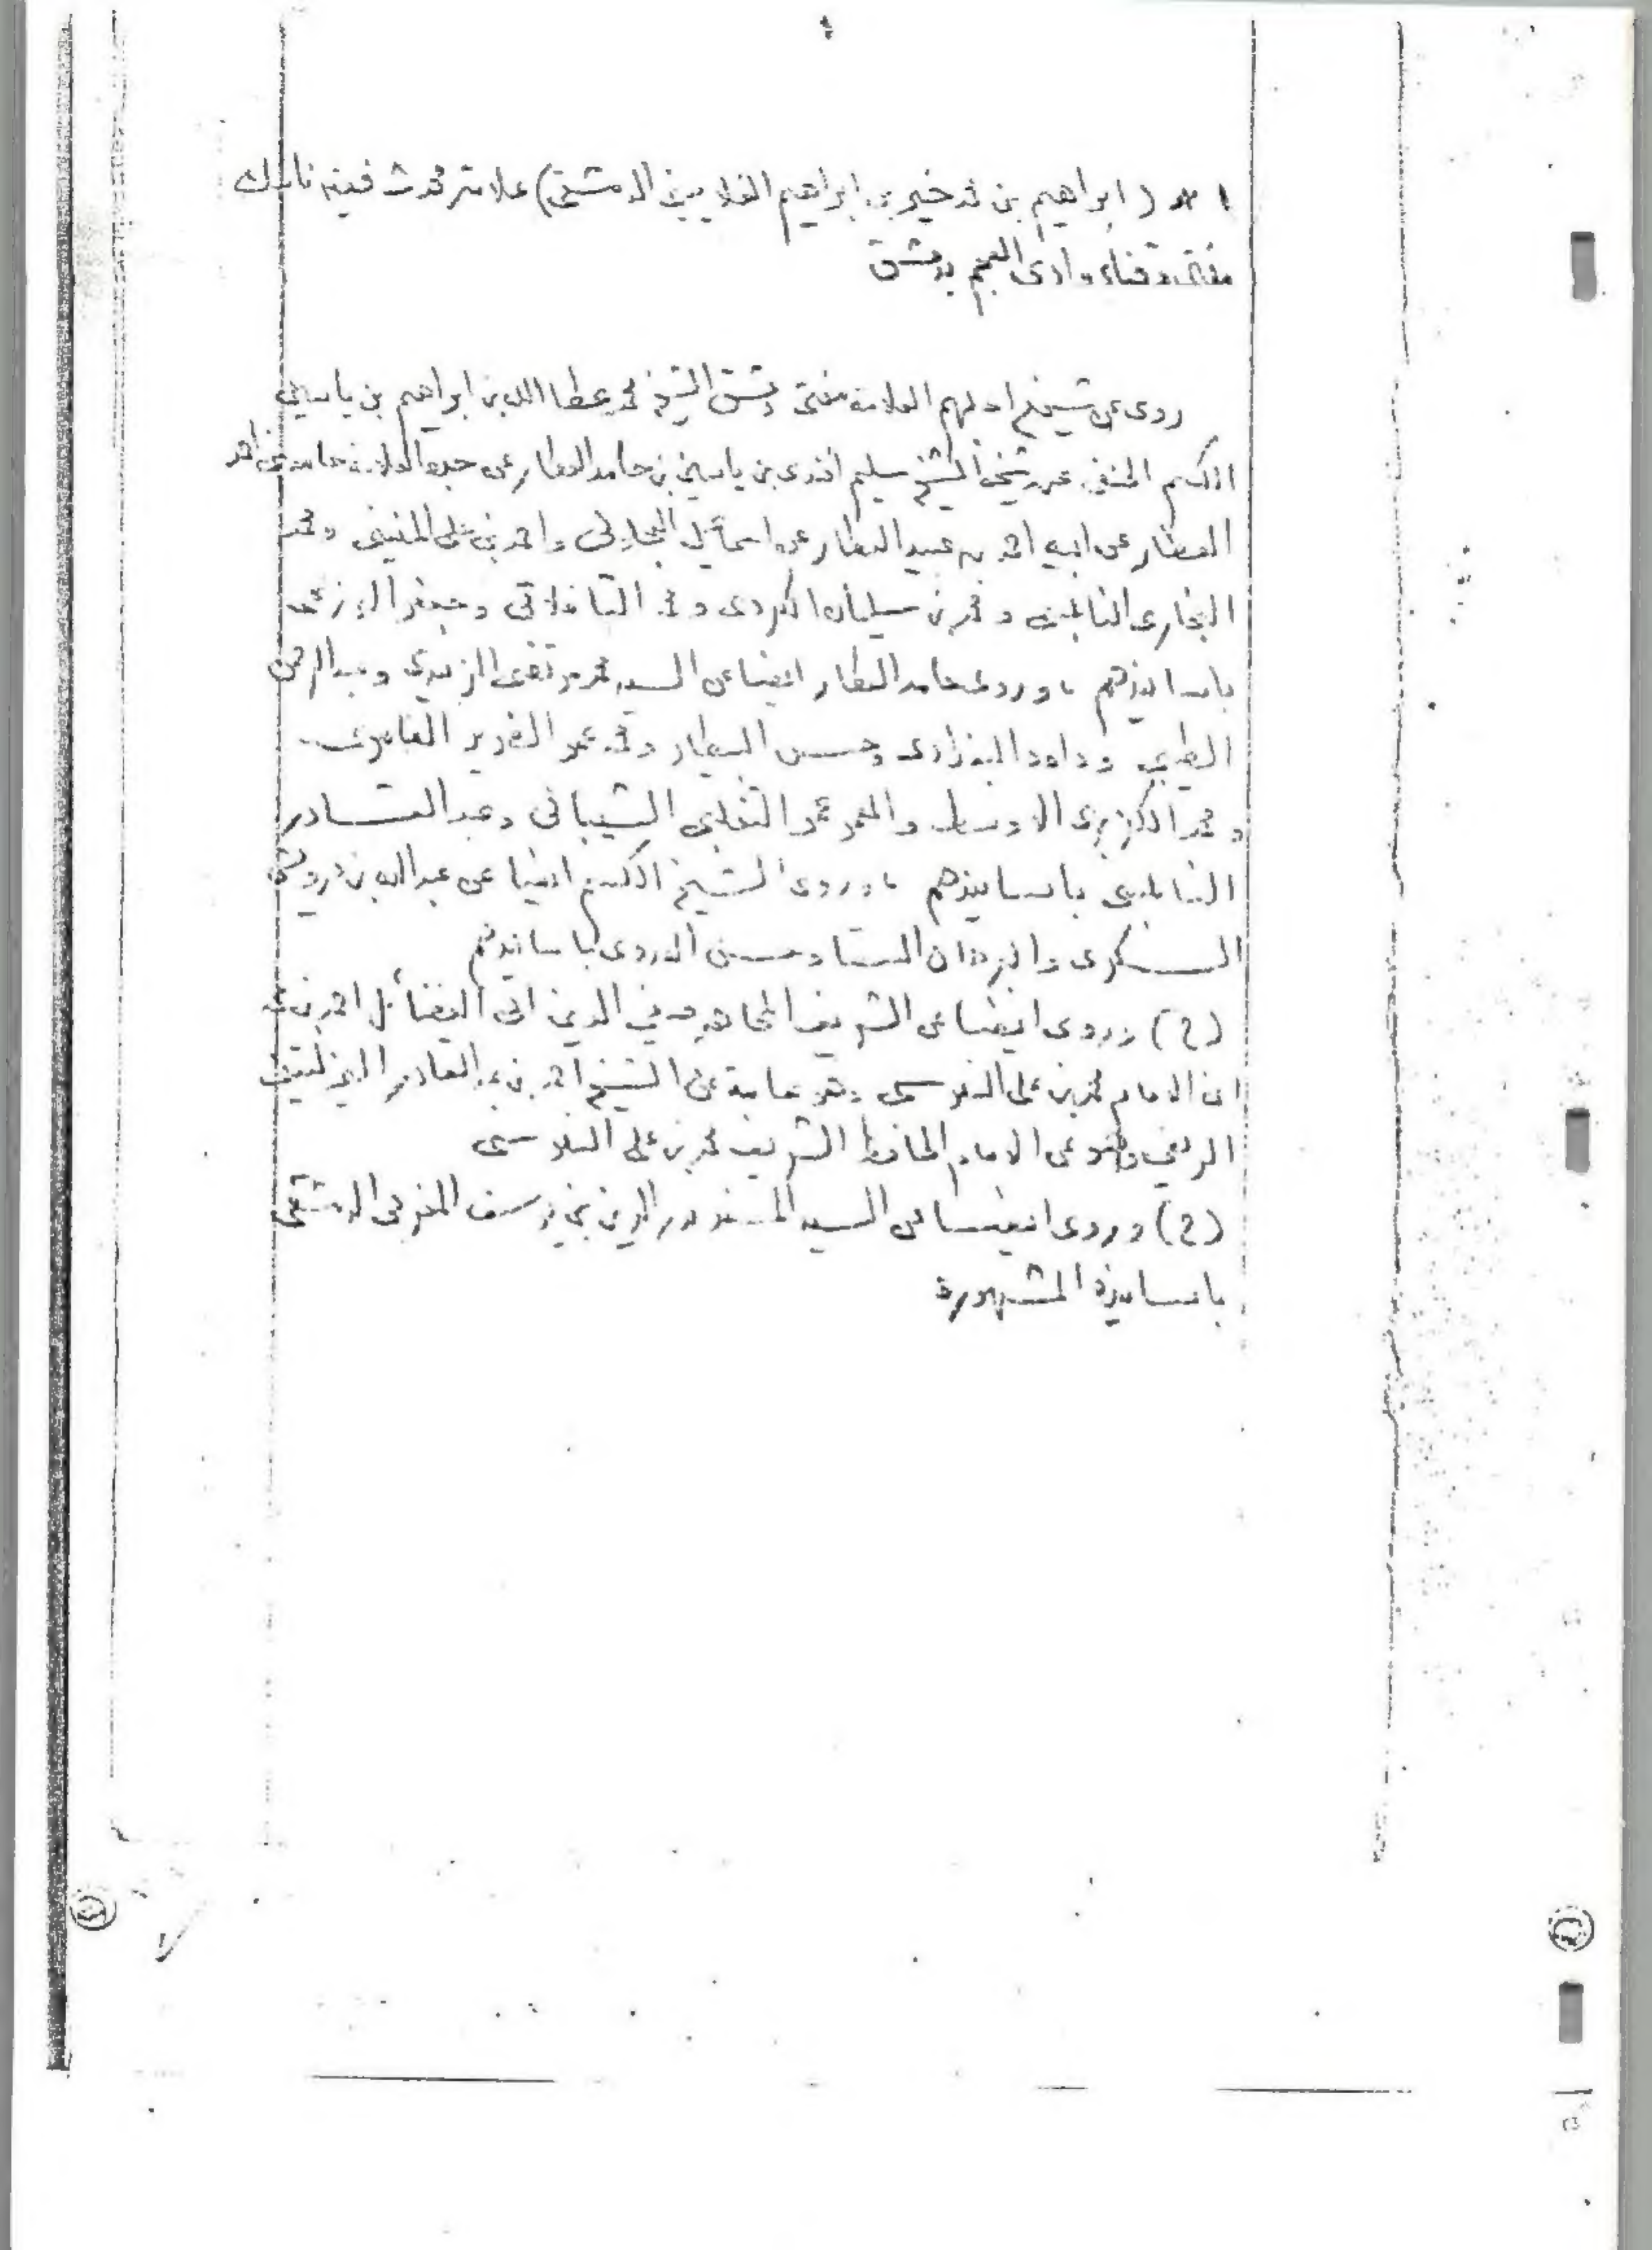 ١ * ( ابراهيم بن محمد خير بن ابراهيم الغلاييني الدمشقي) علامة محدث فقيه ناسك
مفتى قضاء وادى العجم بدمشق
روى عن شيخه اولهم العلامة مفتى دمشق الشيخ محمد عطا الله بن ابراهيم بن ياسين
الكسم الحنفى عن شيخه الشيخ سليم افندى بن ياسين بن حامد العطار عن جده العلامة حامد بن احمد
العطار عن ابيه احمد بن عبيد العطار عن اسمائيل العجلونى واحمد بن على المنينى ومحمد
البخارى النابلسى ومحمد بن سليمان الكردى ومحمد التافلاتى وجعفر البرزنجى
باسانيدهم ، وروى حامد العطار ايضا عن السيد محمد مرتضى الزبيدى وعبد الرحمن
الطيبى وداود البغدادى وحسن البيطار ومحمد عمر الغزى العامرى
ومحمد الكزبرى الاوسط والمعمر محمد التغلبى الشيبانى وعبد القادر
النابلسى باسانيدهم ، وروى الشيخ الكسم ايضا عن عبد الله بن درويش
السكرى والبرهان السقا وحسن العدوى باسانيدهم
(٢) وروى ايضا عن الشريف المجاهد صفي الدين ابى الفضائل احمد بن محمد
ابن الامام محمد بن على السنوسى وهو عامة عن الشيخ احمد بن عبد القادر
الريفي وهو عن الامام الحافظ الشريف محمد بن على السنوسى
(٢) وروى ايضا عن السيد المسند بدر الدين بن يوسف المغربى الدمشقى
باسانيده المشهورة